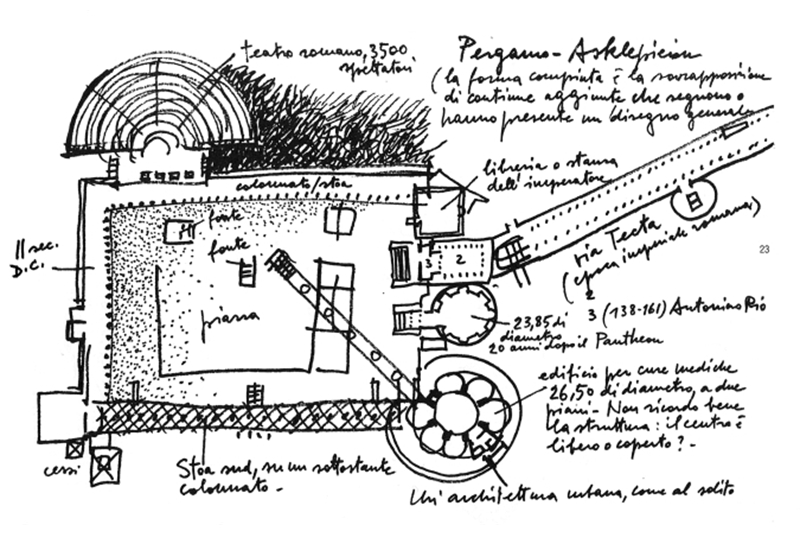 teatro romano, 3500
spettatori
Pergamo - Asklepieion
(la forma compiuta è la sovrapposizione
di continue aggiunte che seguono o
hanno presente un disegno generale
libreria o stanza
dell'imperatore
colonnato/stoa
II sec.
D.C.
fonte
fonte
piazza
3
2
via Tecta
(epoca imperiale romana)
23
2
3 (138-161) Antonino Pio
23,85 di
diametro
20 anni dopo il Pantheon
edificio per cure mediche
26,50 di diametro, a due
piani - Non ricordo bene
la struttura: il centro è
libero o coperto? -
cessi
Stoa sud, su un sottostante
colonnato -
Un'architettura urbana, come al solito